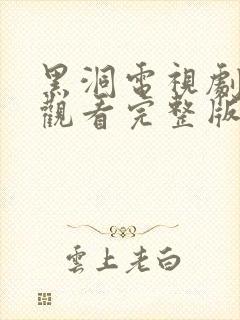 黑洞電視劇
觀看完整版
雲上老白